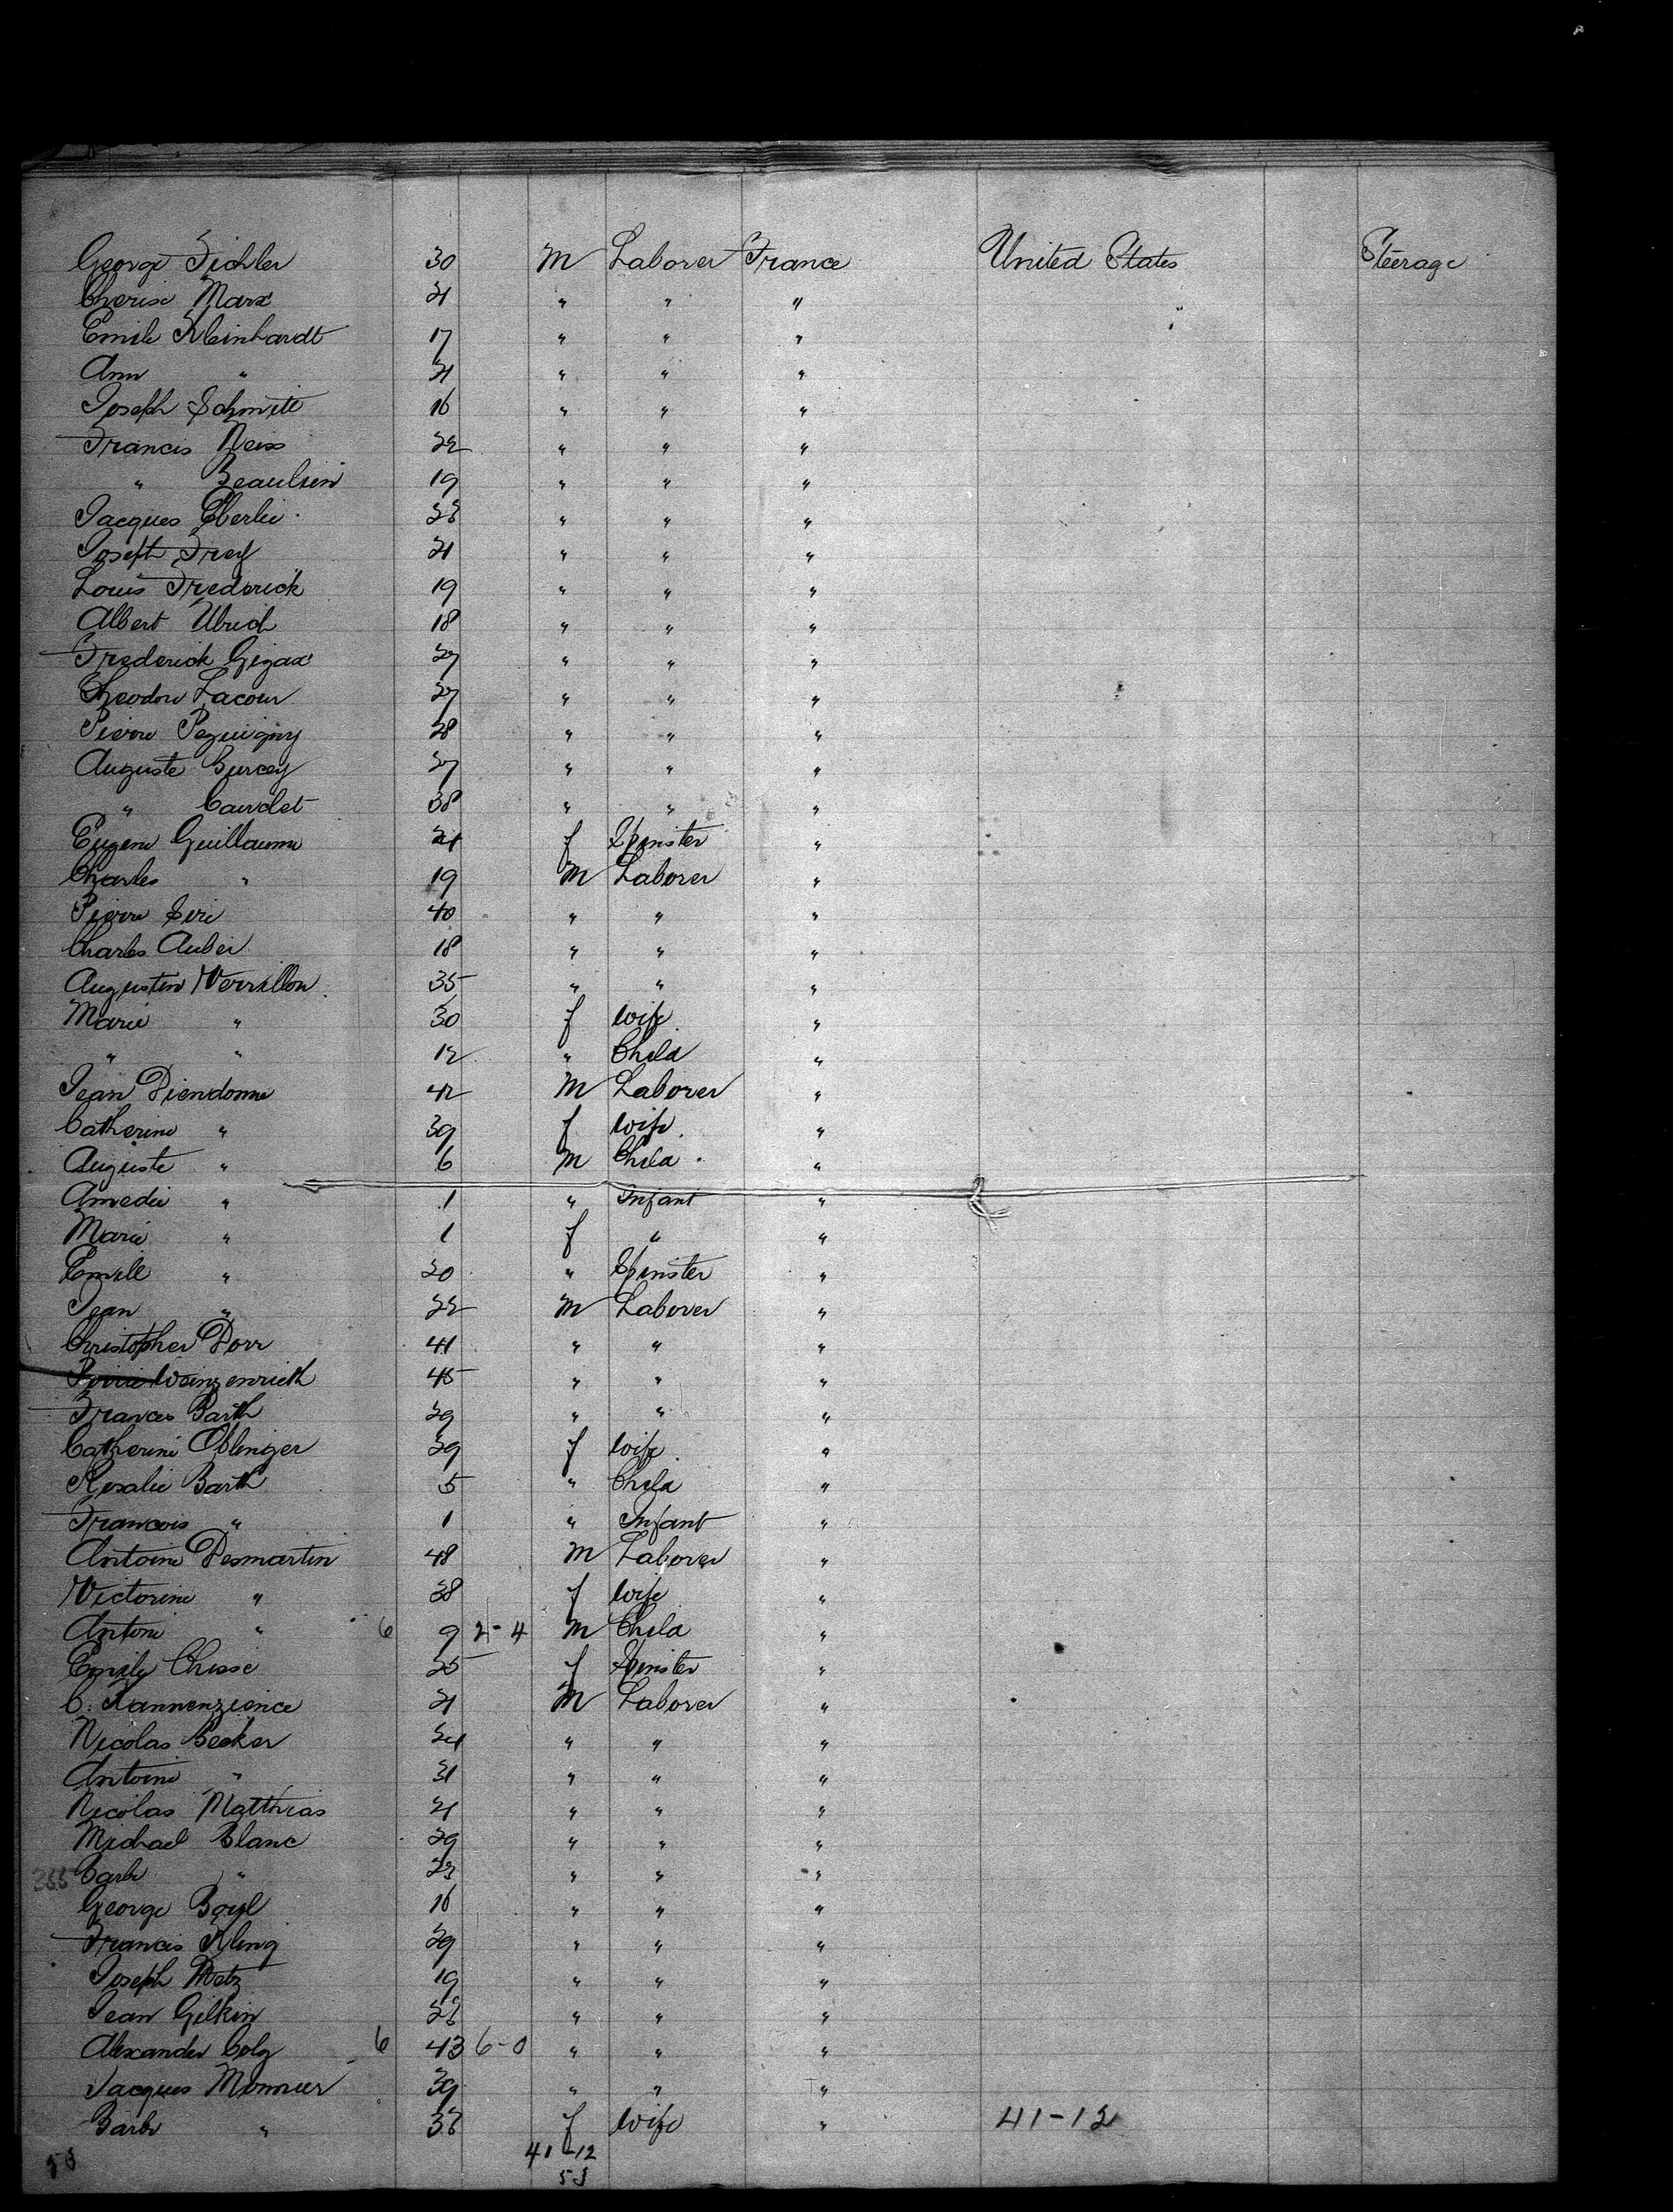 George Fichler 30 M Laborer France United States Steerage
Cherise Marx 21 " " "
Emile Kleinhardt 17 " " "
Ann " 21 " " "
Joseph Schmitt 16 " " "
Francis Neiss 22 " " "
" Beaulieu 19 " " "
Jacques Eberlie 23 " " "
Joseph Frey 21 " " "
Louis Frederick 19 " " "
Albert Ulrich 18 " " "
Frederick Gigax 27 " " "
Theodore Lacour 27 " " "
Pierre Pequigny 28 " " "
Auguste Burcey 27 " " "
" Caudet 38 " " "
Eugene Guillaume 21 f Spinster "
Charles " 19 M Laborer "
Pierre Seri 40 " " "
Charles Auber 18 " " "
Augustin Verrillon 35 " " "
Marie " 30 f wife "
" " 12 " Child "
Jean Diendonne 42 M Laborer "
Catherine " 39 f wife "
Auguste " 6 M Child "
Amedie " 1 " Infant "
Marie " 1 f " "
Emill " 20 " Spinster "
Jean " 22 M Laborer "
Christopher Dorr 41 " " "
Weinzenrieth 45 " " "
Frances Barth 29 " " "
Catherine Oblinger 29 f wife "
Rosalie Barth 5 " Child "
Francois " 1 " Infant "
Antoine Desmartin 48 M Laborer "
Victorine " 38 f wife "
Antoni " 6 9 2-4 M Child "
Emily Chisse 25 f Spinster "
C. Kannenzience 21 M Laborer "
Nicolas Becker 24 " " "
Antoine " 31 " " "
Nicolas Matthias 21 " " "
Michael Blanc 29 " " "
Barbe " 23 " " "
George Boyl 16 " " "
Francis Kling 29 " " "
Joseph Metz 19 " " "
Jean Gilkin 23 " " "
Alexander Colz 6 43 6-0 " " "
Jacques Monnier 39 " " "
Barbe " 33 f wife " 41-12
53 41-12
53